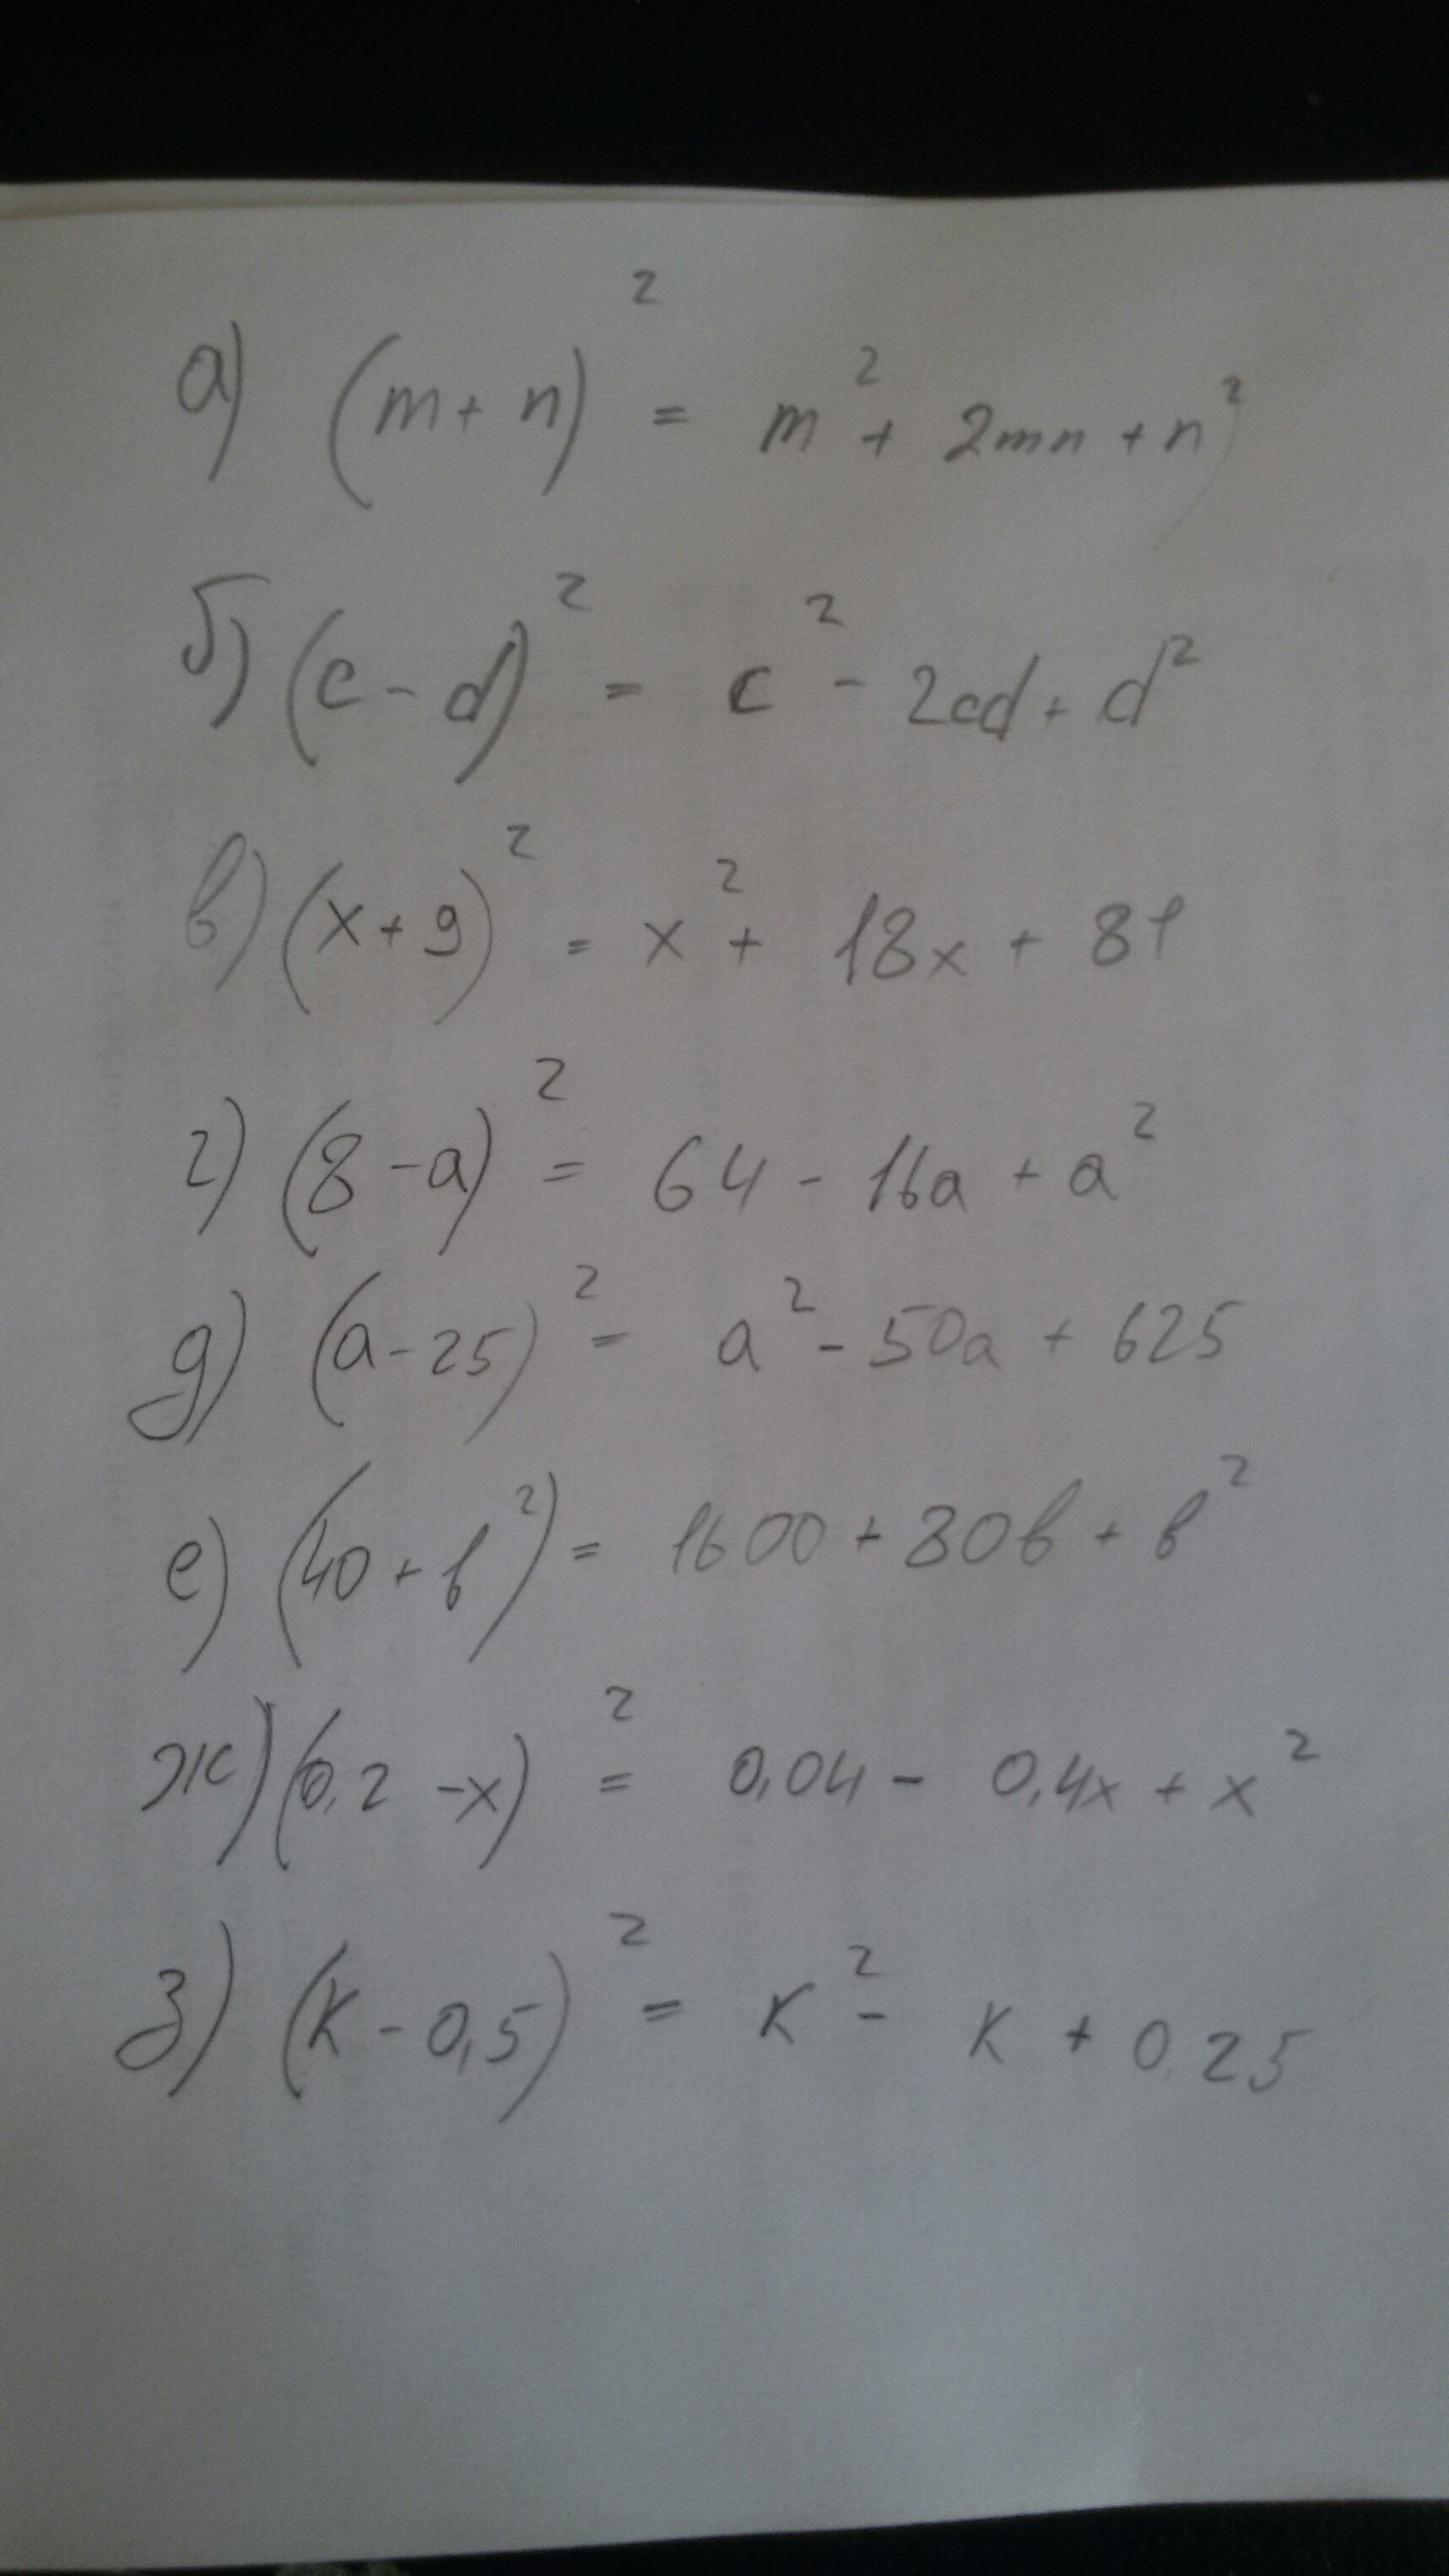 а) (m + n)² = m² + 2mn + n²
б) (c - d)² = c² - 2cd + d²
в) (x + 9)² = x² + 18x + 81
г) (8 - a)² = 64 - 16a + a²
д) (a - 25)² = a² - 50a + 625
е) (40 + b²) = 1600 + 80b + b²
ж) (0,2 - x)² = 0,04 - 0,4x + x²
з) (k - 0,5)² = k² - k + 0,25